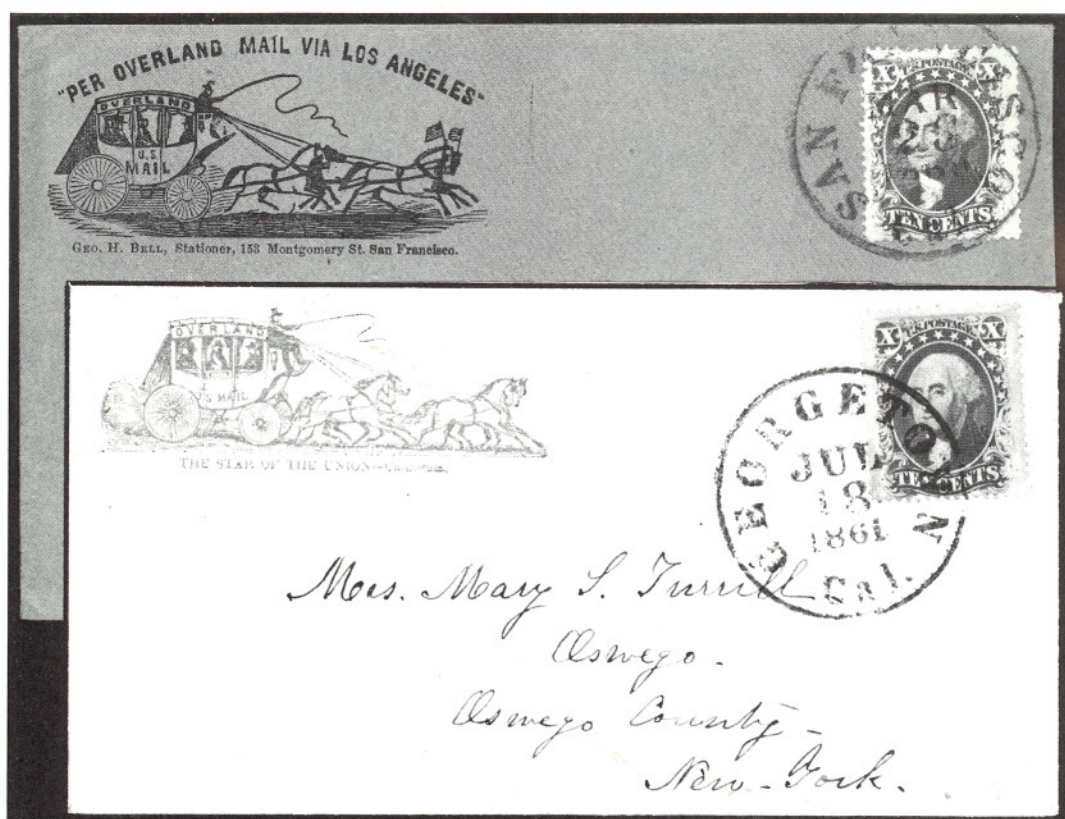 "PER OVERLAND MAIL VIA LOS ANGELES"
OVERLAND
U.S.
MAIL
GEO. H. BELL, Stationer, 153 Montgomery St. San Francisco.
SAN
U.S. POSTAGE
X X
TEN CENTS
OVERLAND
U.S MAIL
THE STAR OF THE UNION
U.S. POSTAGE
X X
TEN CENTS
GEORGETO N
JUL
18
1861
Cal.
Mrs. Mary S. Turrill
Oswego.
Oswego County
New-York.